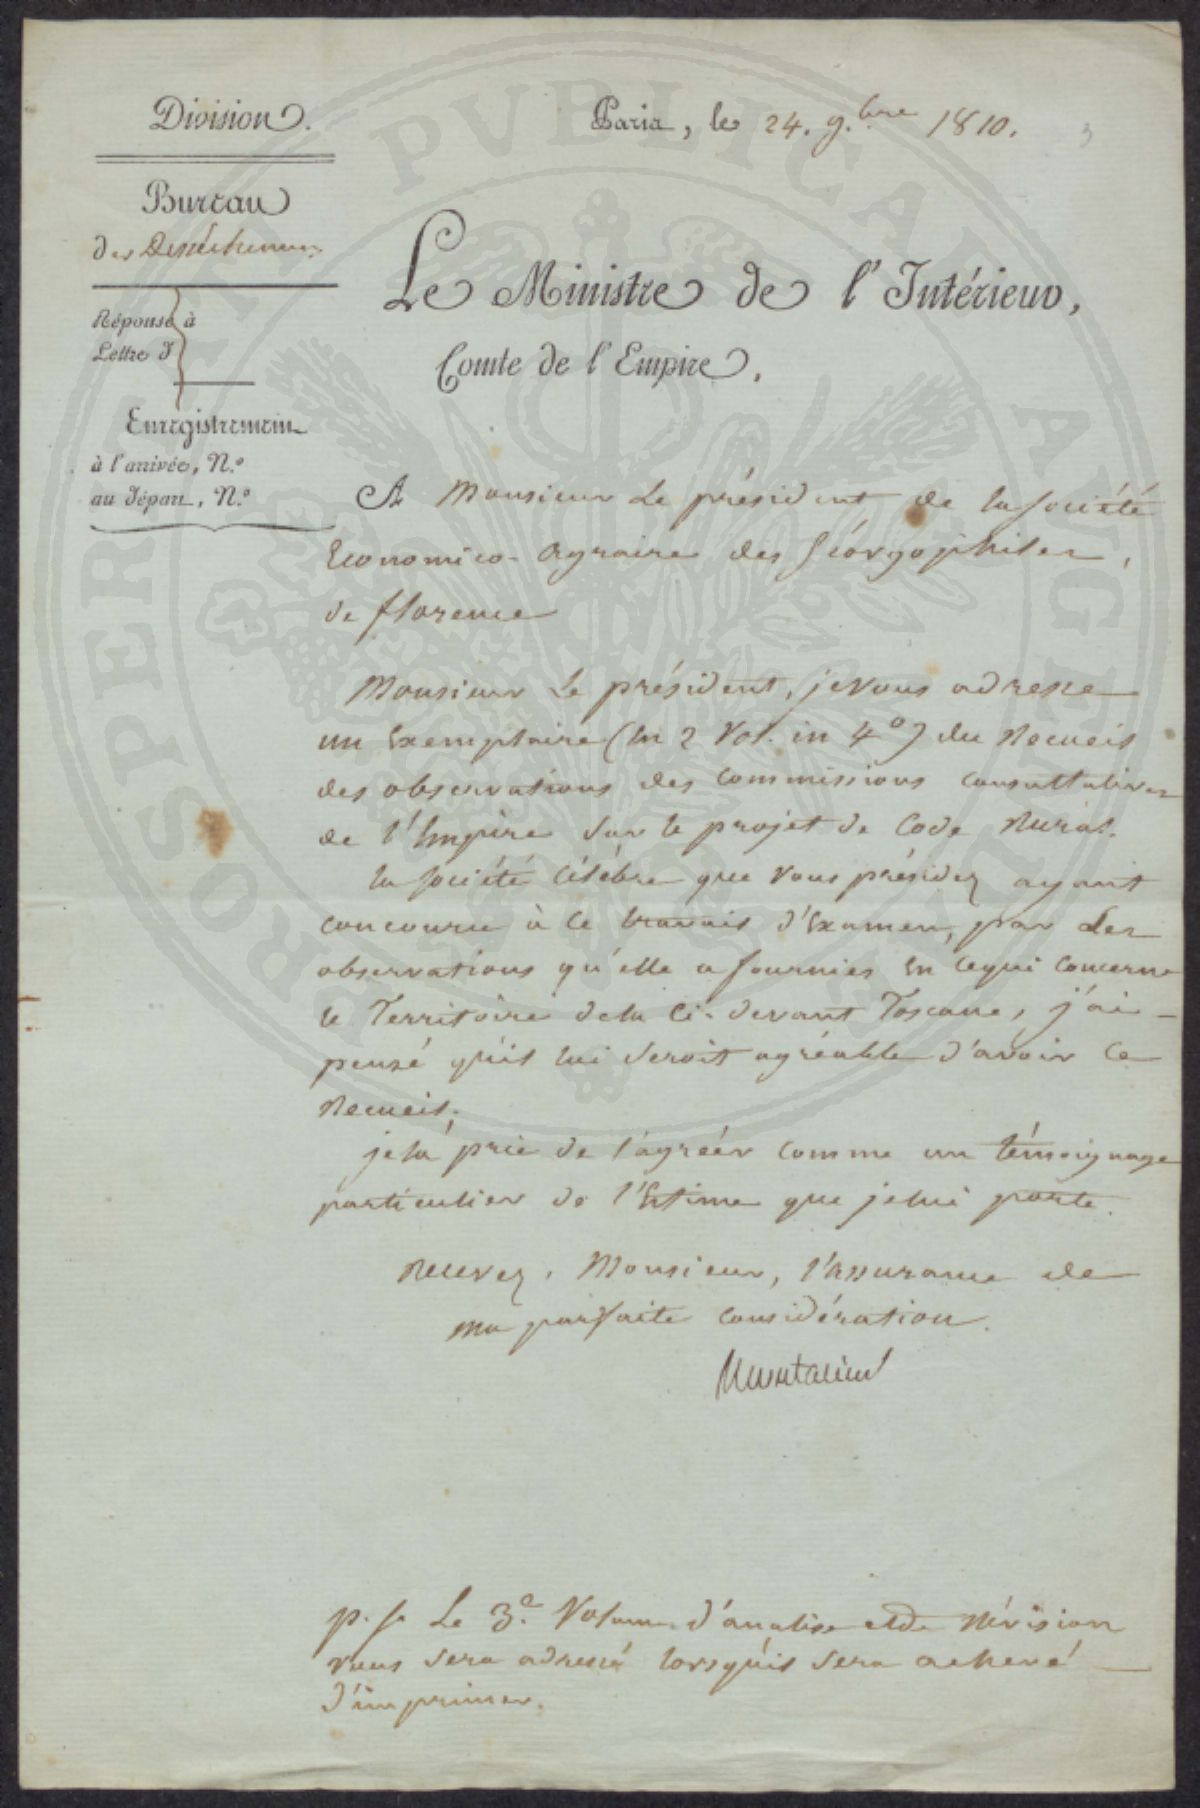 Division.
Bureau
des
Réponse à
Lettre
Enregistrement
à l'arrivée, N.º
au départ, N.º
Paris, le 24. 9.bre 1810.
3
Le Ministre de l'Intérieur,
Comte de l'Empire,
A Monsieur Le président de la Société
Economico-Agraire des Géorgophiles,
de florence
Monsieur Le président, je vous adresse
un Exemplaire (En 2 Vol. in 4º) du Recueil
des observations des Commissions Consultatives
de l'Empire sur le projet de Code Rural.
La Société Célèbre que Vous présidez ayant
concouru à Ce travail d'Examen, par des
observations qu'elle a fournies En Ce qui Concerne
le Territoire de la Ci-devant Toscane, j'ai
pensé qu'il lui seroit agréable d'avoir Ce
Recueil.
je la prie de l'agréér comme un témoignage
particulier de l'Estime que je lui porte.
Recevez, Monsieur, l'assurance de
ma parfaite Considération.
Montalivet
p. s. Le 3.e Volume d'analise et de Révision
vous sera adressé lorsqu'il sera achevé
d'imprimer.
PROSPERITATI PUBLICAE AUGENDAE